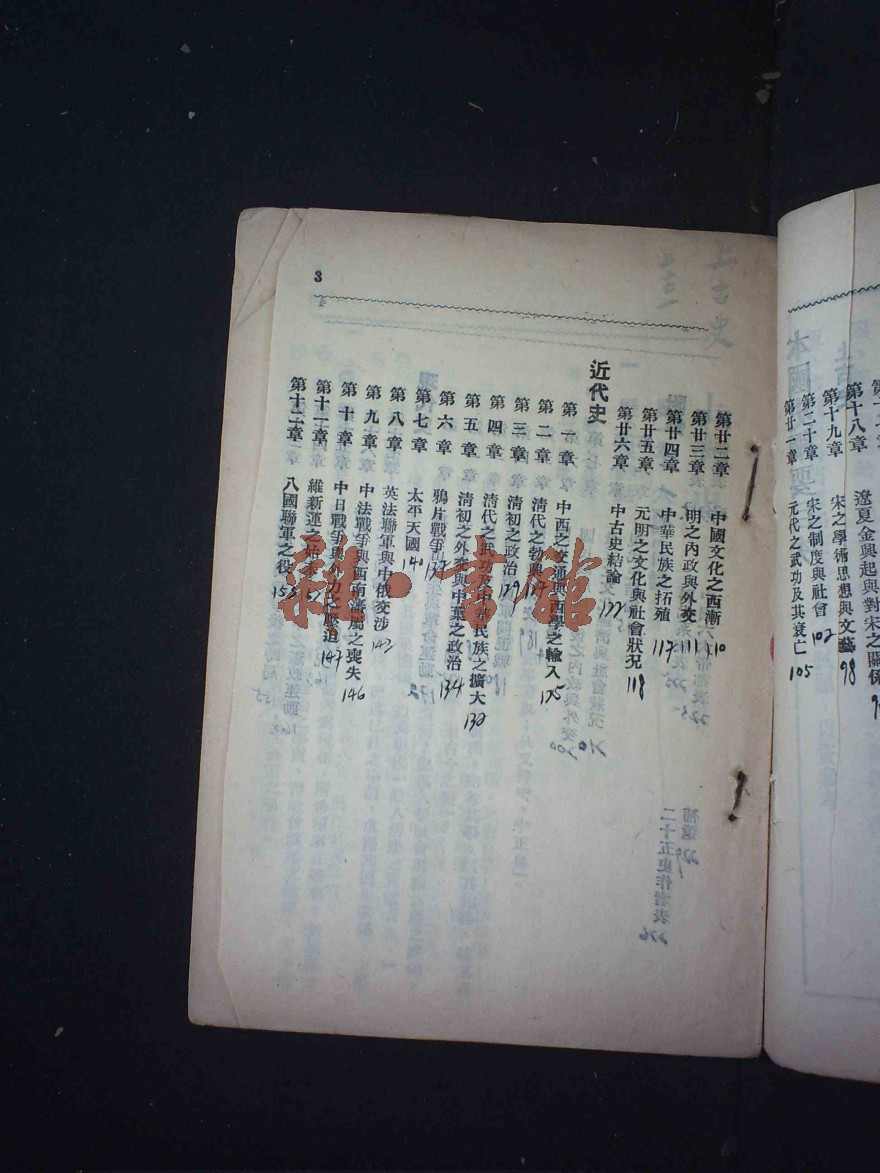 第十八章 遼夏金興起與對宋之關係
第十九章 宋之學術思想與文藝 98
第二十章 宋之制度與社會 102
第廿一章 元代之武功及其衰亡 105
3
第廿二章 中國文化之西漸 110
第廿三章 明之內政與外交
第廿四章 中華民族之拓殖 117
第廿五章 元明之文化與社會狀況 118
第廿六章 中古史結論 122
近代史
第一章 中西之交通與西學之輸入 125
第二章 清代之勃興
第三章 清初之政治 129
第四章 清代之武功及中華民族之擴大 132
第五章 清初之外交與中葉之政治 134
第六章 鴉片戰爭 137
第七章 太平天國 140
第八章 英法聯軍與中俄交涉 143
第九章 中法戰爭與西南藩屬之喪失 146
第十章 中日戰爭與外力之壓迫 147
第十一章 維新運之始末
第十二章 八國聯軍之役 153
雜·書館